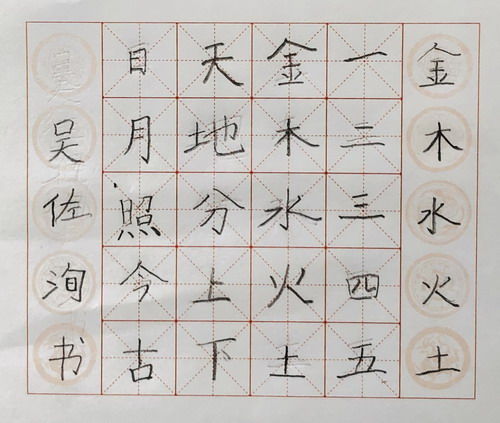 金木水火土
一二三四五
金木水火土
天地分上下
日月照今古
吴佐洵书